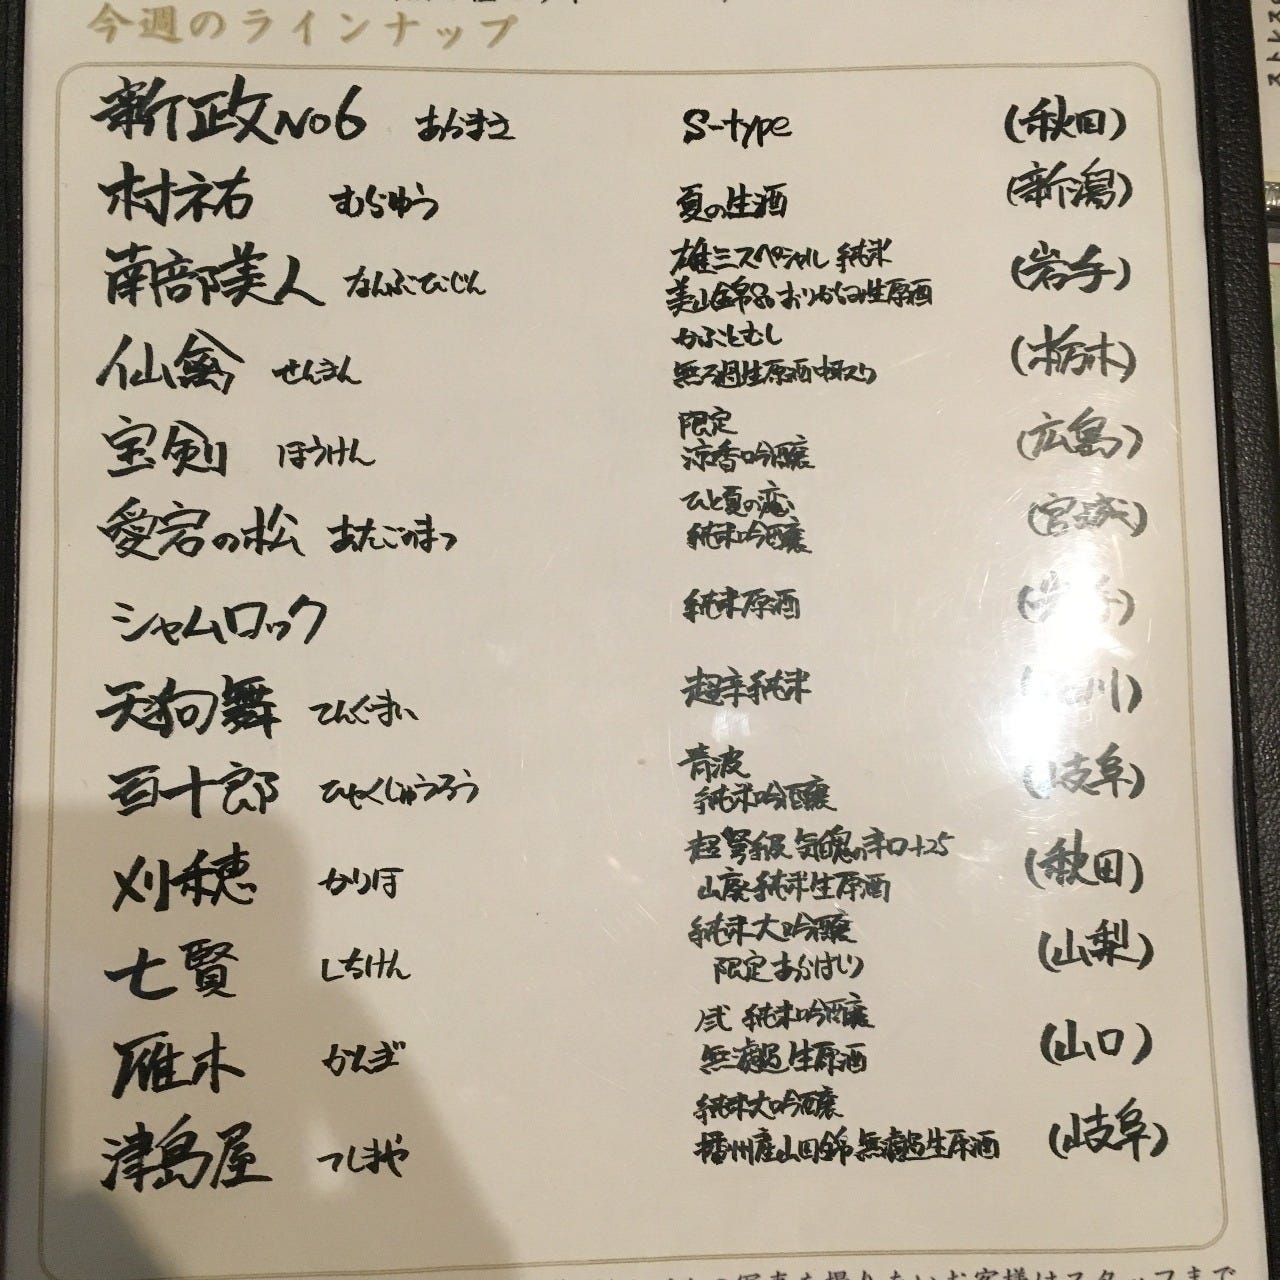 今週のラインナップ
新政No6 あらまさ S-type (秋田)
村祐 むらゆう 夏の生酒 (新潟)
南部美人 なんぶびじん 雄三スペシャル 純米 (岩手)
美山錦 おりがらみ生原酒
仙禽 せんきん かぶとむし (栃木)
無ろ過生原酒中取り
宝剣 ほうけん 限定 (広島)
涼香吟醸
愛宕の松 あたごのまつ ひと夏の恋 (宮城)
純米吟醸
シャムロック 純米原酒 (岩手)
天狗舞 てんぐまい 超辛純米 川)
百十郎 ひゃくじゅうろう 青波 (岐阜)
純米吟醸
刈穂 かりほ 超弩級 気魄の辛口+25 (秋田)
山廃純米生原酒
七賢 しちけん 純米大吟醸 (山梨)
限定あらばしり
雁木 がんぎ 弐 純米吟醸 (山口)
無濾過生原酒
津島屋 つしまや 純米大吟醸 (岐阜)
播州産山田錦無濾過生原酒
写真を撮りたいお客様はスタッフまで